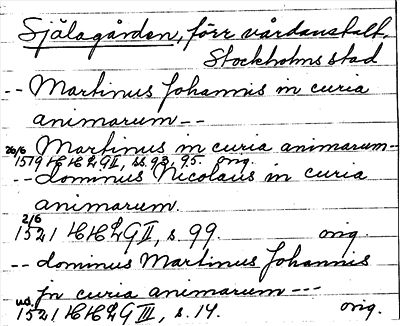 Själagården, förr vårdanstalt,
Stockholms stad
-- Martinus Johannis in curia
animarum --
Martinus in curia animarum --
26/6 1519 HHLGII, ss. 93, 95. orig.
-- dominus Nicolaus in curia
animarum.
2/6
1521 HHLGII, s. 99. orig.
-- dominus Martinus Johannis
in curia animarum ---
u.d. 1521 HHLGIII, s. 14. orig.